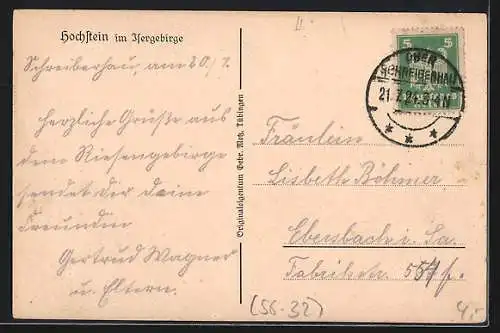 Hochstein im Isergebirge
Schreiberhau, am 20./7.
Herzliche Grüße aus
dem Riesengebirge
sendet dir deine
Freundin
Gertrud Wagner
u. Eltern.
Originaleigentum Gebr. Metz, Tübingen
5 5
OBER
SCHREIBERHAU
21.7.
* * *
Fräulein
Lisbeth Böhmer
Ebersbach i. Sa.
Fabrikstr.
(56-32)